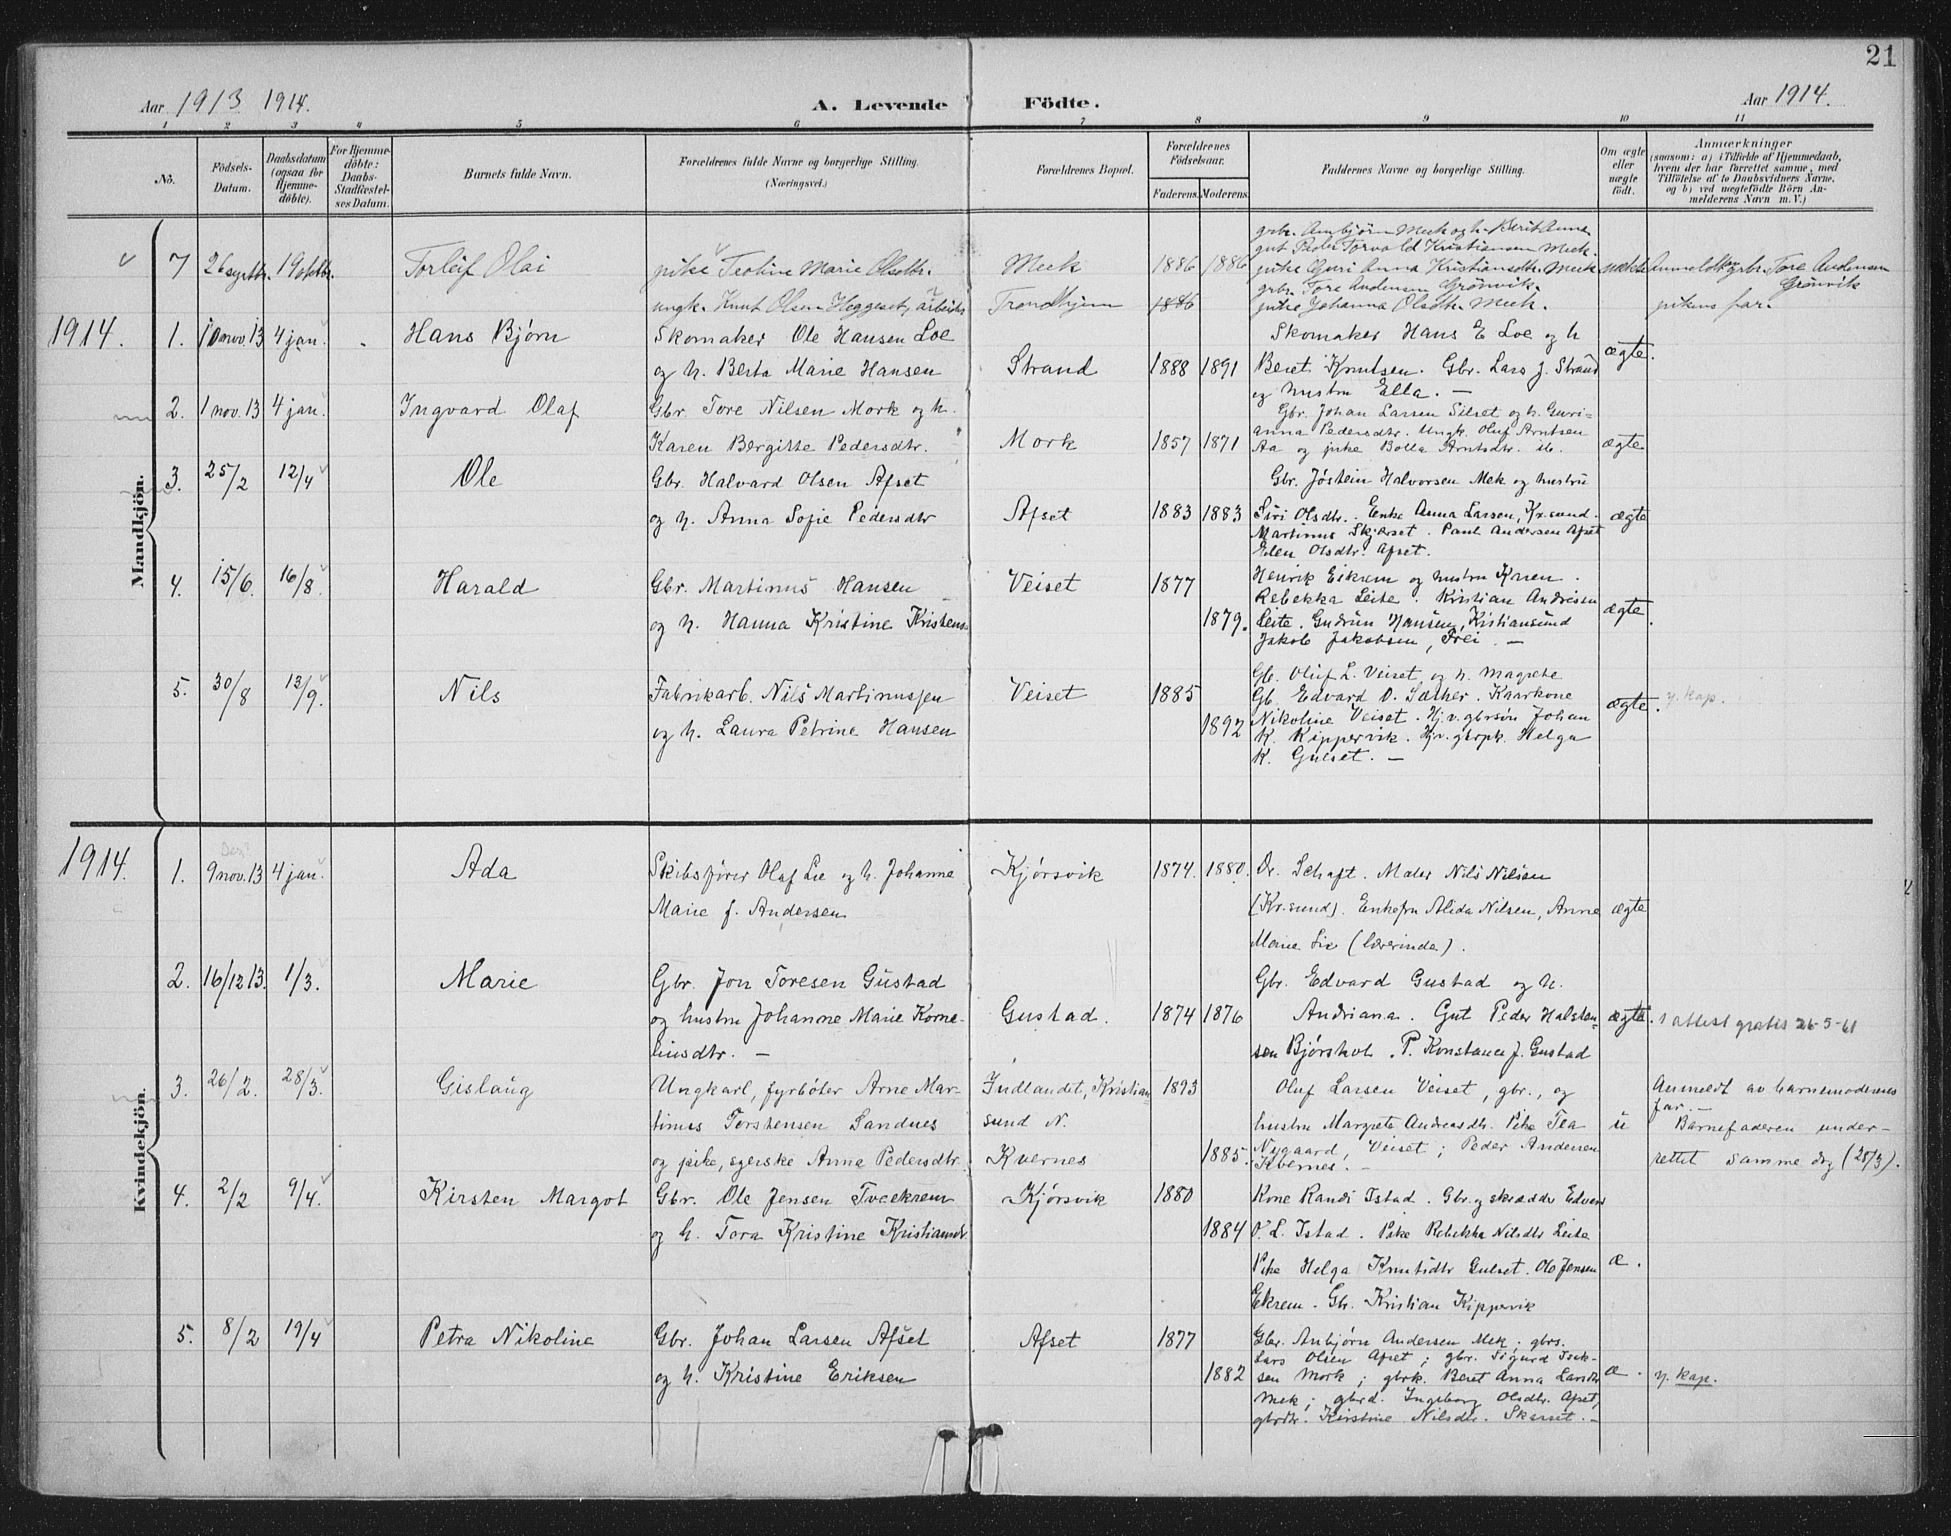 21
Aar 1913 1914.
A. Levende Födte.
Aar 1914.
1 2 3 4 5 6 7 8 9 10 11
No.
Födsels-
Datum.
Daabsdatum
(ogsaa for
Hjemme-
döbte).
For Hjemme-
döbte:
Daabs-
Stadfæstel-
ses Datum.
Barnets fulde Navn.
Forældrenes fulde Navne og borgerlige Stilling.
(Næringsvei.)
Forældrenes Bopæl.
Forældrenes
Födselsaar.
Faderens. Moderens.
Faddernes Navne og borgerlige Stilling.
Om ægte
eller
uægte
födt.
Anmærkninger
(saasom: a) i Tilfælde af Hjemmedaab,
hvem der har forrettet samme, med
Tilföielse af to Daabsvidners Navne,
og b) ved uægtefödte Börn An-
melderens Navn m. V.)
Mandkjön.
7 26 septbr. 19 oktbr.
Torleif Olai
pike Teoline Marie Olsdtr.
ungk. Knut Olsen Heggeset, arbeider
Meek
Trondhjem
1886 1886
1886
gbr. Arnbjörn Meek og h. Berit Anna
gut Peder Torvald Kristiansen Meek.
pike Guri Anna Kristiansdtr. Meek
gbr. Tore Andersen Grönvik.
pike Johanna Olsdtr. Meek.
uækte
Anmeldt gbr. Tore Andersen
Grönvik
pikens far.
1914. 1. 10 nov. 13 4 jan.
Hans Bjørn
Skomaker Ole Hansen Loe
og h. Berta Marie Hansen
Strand
1888 1891
Skomaker Hans E Loe og h
Beret Knutsen. Gbr. Lars J. Strand
og hustru Ella. —
ægte.
2. 1 nov. 13 4 jan.
Ingvard Olaf
Gbr. Tore Nilsen Mork og h.
Karen Bergitte Pedersdtr.
Mork
1857 1871
Gbr. Johan Larsen Silset og h. Guri-
anna Pedersdtr. Ungk. Oluf Arntsen
Aa og pike Bolla Arntsdtr. ib.
ægte
3. 25/2 12/4
Ole
Gbr. Halvard Olsen Afset
og h. Anna Sofie Pedersdtr
Afset
1883 1883
Gbr. Jøstein Halvorsen Mek og hustru
Siri Olsdtr. Enke Anna Larsen, Kr.sund.
Martinus Skjerset. Paul Andersen Afset
Elen Olsdtr. Afset.
ægte
4. 15/6. 16/8.
Harald
Gbr. Martinus Hansen
og h. Hanna Kristine Kristens.
Veiset
1877
1879.
Henrik Eikrem og hustru Karen.
Rebekka Leite. Kristian Andresen
Leite. Gudrun Hansen, Kristiansund
Jakob Jakobsen, Frei. —
ægte.
5. 30/8 13/9.
Nils
Fabrikarb. Nils Martinussen
og h. Laura Petrine Hansen
Veiset
1885
1892
Gb. Oluf L. Veiset, og h. Magrete
Gb. Edvard O. Sæther. Kaarkone
Nikoline Veiset. Hj. v. gbrsøn Johan
K. Kippervik. Hjv. gbrpk. Helga
K. Gulset. —
ægte.
y. kap.
Kvindekjön.
1914. 1. 9 nov. 13 4 jan.
Des?
Ada
Skibsfører Olaf Lie og h. Johanne
Marie f. Andersen
Kjørsvik
1874. 1880.
Dr. Schaft. Maler Nils Nilsen
(Kr.sund). Enkefru Alida Nilsen, Anne
Marie Lie (lærerinde).
ægte
2. 16/12 13. 1/3.
Marie
Gbr. Jon Toresen Gustad
og hustru Johanne Marie Korne-
liusdtr. —
Gustad.
1874 1876
Gbr. Edvard Gustad og h.
Andriana. Gut Peder Halsten-
sen Bjørshol. P. Konstance J. Gustad
ægte.
1 attest gratis 26-5-61
3. 26/2. 28/3.
Gislaug
Ungkarl, fyrbøter Arne Mar-
tinus Torstensen Sandnes
og pike, syerske Anna Pedersdtr.
Indlandet, Kristian-
sund N.
Kvernes
1893
1885.
Oluf Larsen Veiset, gbr., og
hustru Margrete Andreasdtr. Pike Tea
Nygaard, Veiset; Peder Andersen
Kvernes. —
ü
Anmeldt av barnemoderens
far. —
Barnefaderen under-
rettet samme dag (28/3).
4. 2/2 9/4.
Kirsten Margot
Gbr. Ole Jensen Tveekrem
og h. Tora Kristine Kristiansdr
Kjørsvik
1880
1884
Kone Randi Istad. Gbr. og skrædder Edvard
O. L. Istad. Pike Rebekka Nilsdtr Leite
Pike Helga Knutsdtr Gulset. Ole Jensen
Ekrem. Gb. Kristian Kippervik
æ.
5. 8/2 19/4
Petra Nikoline
Gbr. Johan Larsen Afset
og h. Kristine Eriksen
Afset
1877
1882
Gbr. Anbjørn Andersen Mek; gbrs.
Lars Olsen Afset; gbr. Sigurd Isak-
sen Mork; gbrk. Beret Anna Larsdtr
Mek; gbrd. Ingeborg Olsdtr. Afset,
gbrdtr. Kirstine Nilsdtr. Skarset. —
æ.
y. kap.